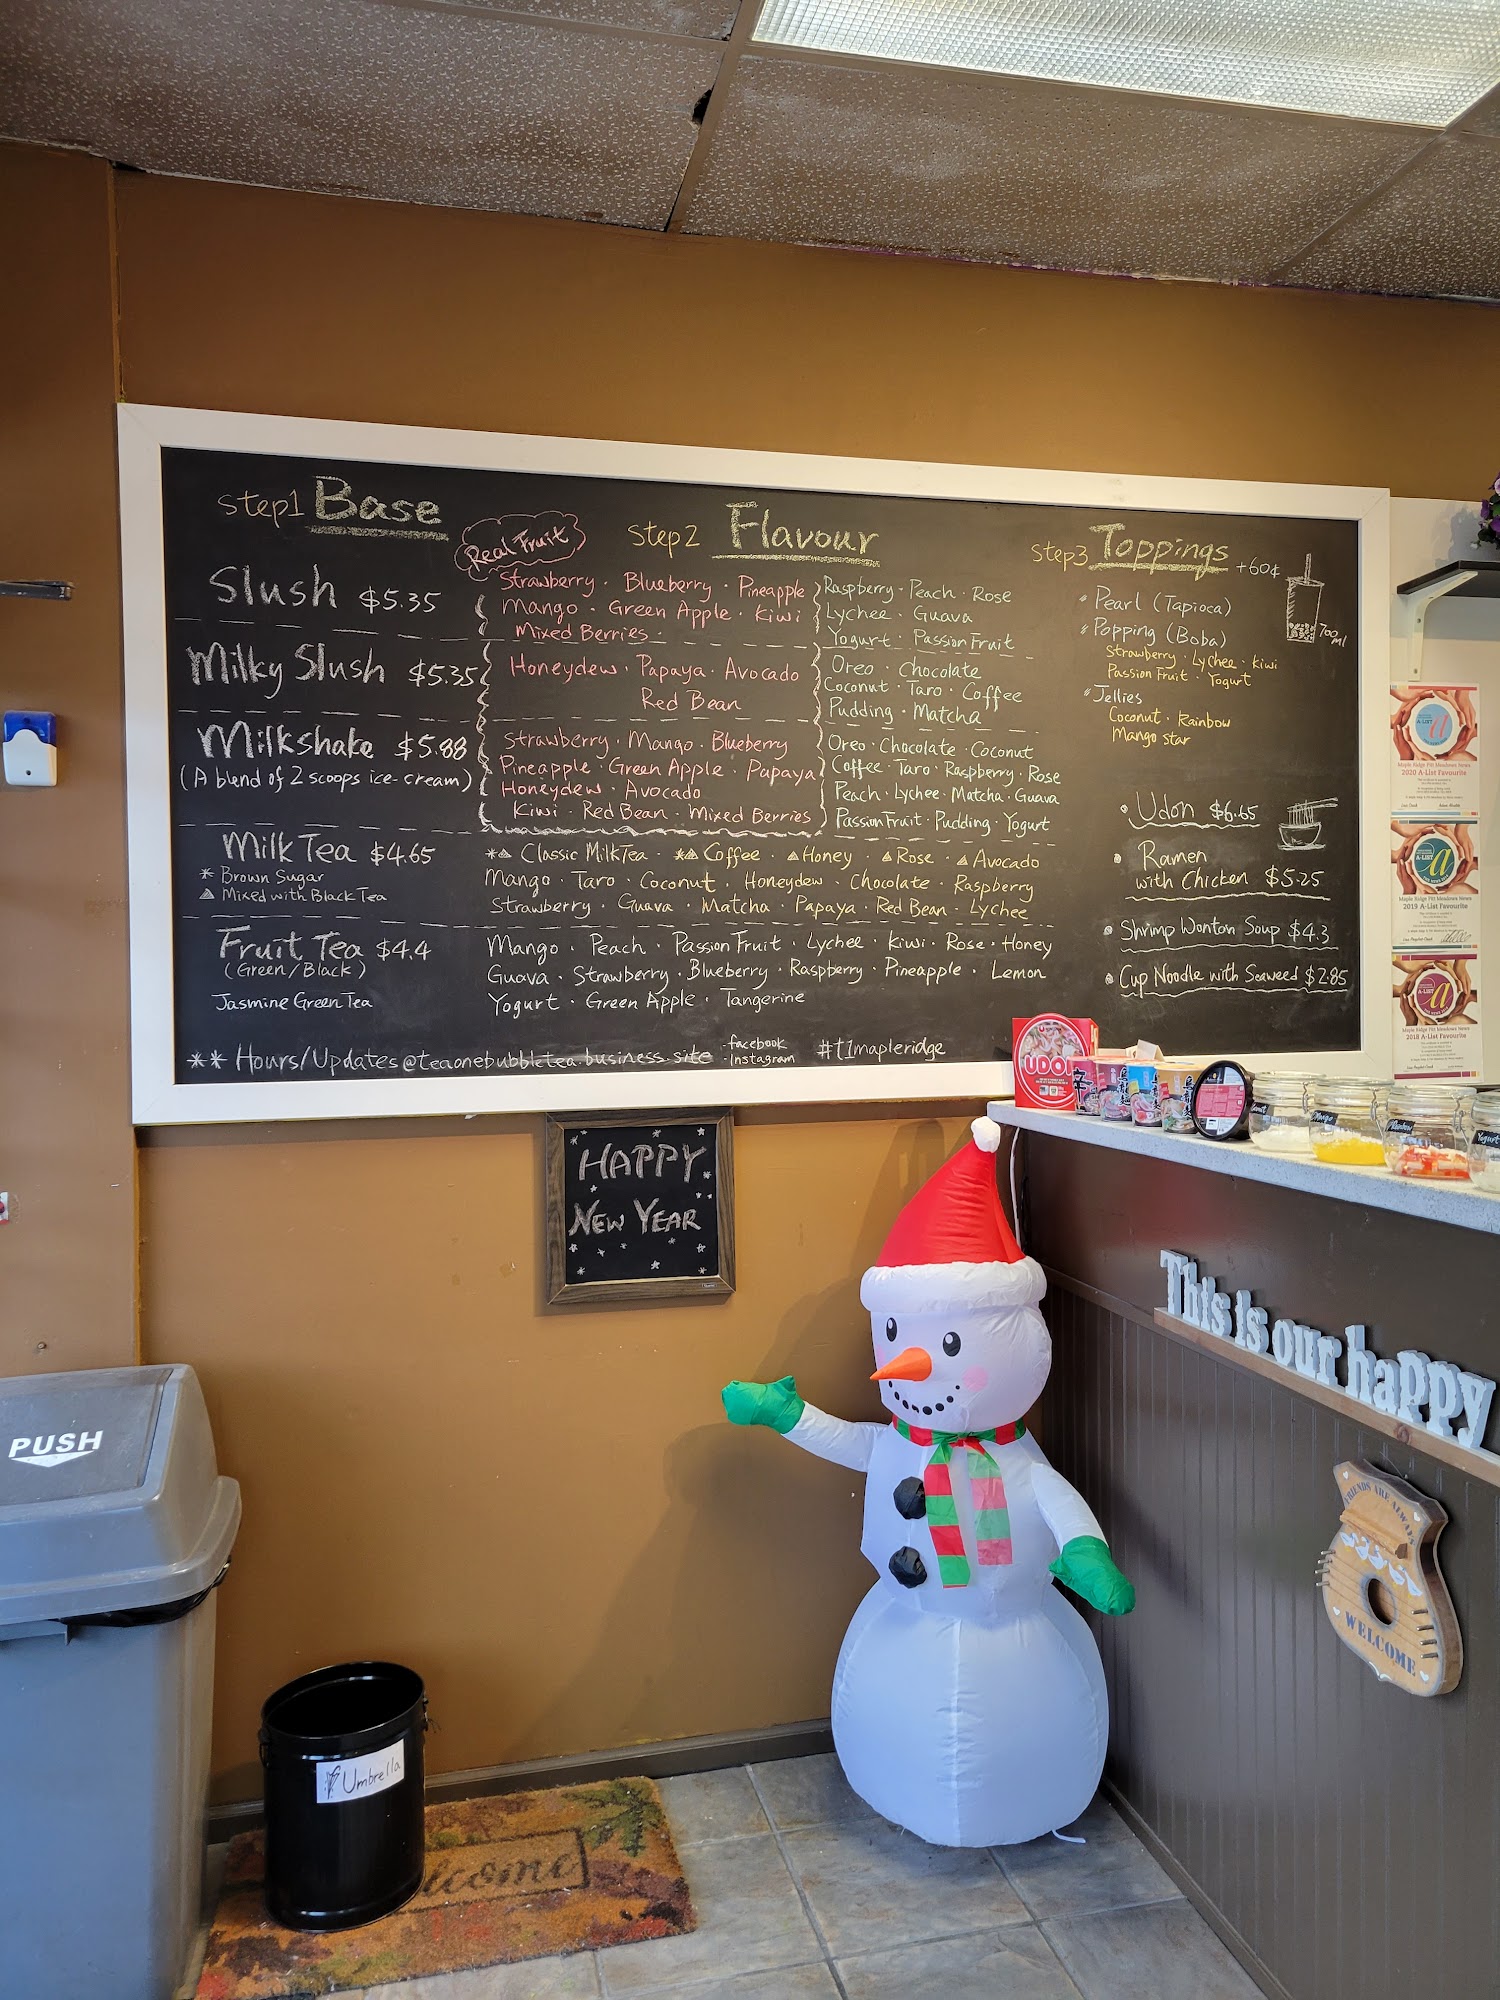 Step1 Base
Slush $5.35
Milky Slush $5.35
Milkshake $5.88
(A blend of 2 scoops ice-cream)
Milk Tea $4.65
* Brown Sugar
▲ Mixed with Black Tea
Fruit Tea $4.4
(Green/Black)
Jasmine Green Tea
Real Fruit
Step2 Flavour
Strawberry · Blueberry · Pineapple
Mango · Green Apple · Kiwi
Mixed Berries ·
Raspberry · Peach · Rose
Lychee · Guava
Yogurt · Passion Fruit
Honeydew · Papaya · Avocado
Red Bean
Oreo · Chocolate
Coconut · Taro · Coffee
Pudding · Matcha
Strawberry · Mango · Blueberry
Pineapple · Green Apple · Papaya
Honeydew · Avocado
Kiwi · Red Bean · Mixed Berries
Oreo · Chocolate · Coconut
Coffee · Taro · Raspberry · Rose
Peach · Lychee · Matcha · Guava
Passion Fruit · Pudding · Yogurt
*▲ Classic Milk Tea · *▲ Coffee · ▲ Honey · ▲ Rose · ▲ Avocado
Mango · Taro · Coconut · Honeydew · Chocolate · Raspberry
Strawberry · Guava · Matcha · Papaya · Red Bean · Lychee
Mango · Peach · Passion Fruit · Lychee · Kiwi · Rose · Honey
Guava · Strawberry · Blueberry · Raspberry · Pineapple · Lemon
Yogurt · Green Apple · Tangerine
Step3 Toppings +60¢
Pearl (Tapioca)
Popping (Boba)
Strawberry · Lychee · Kiwi
Passion Fruit · Yogurt
Jellies
Coconut · Rainbow
Mango Star
700ml
Udon $6.65
Ramen
with Chicken $5.25
Shrimp Wonton Soup $4.3
Cup Noodle with Seaweed $2.85
** Hours/Updates @teaonebubbletea.business.site
-facebook
-Instagram
#t1mapleridge
A-LIST
a
Maple Ridge Pitt Meadows News
2020 A-List Favourite
A-LIST
a
Maple Ridge Pitt Meadows News
2019 A-List Favourite
A-LIST
a
Maple Ridge Pitt Meadows News
2018 A-List Favourite
UDON
Mango
Rainbow
Yogurt
HAPPY
NEW YEAR
This is our happy
FRIENDS ARE ALWAYS
WELCOME
PUSH
Umbrella